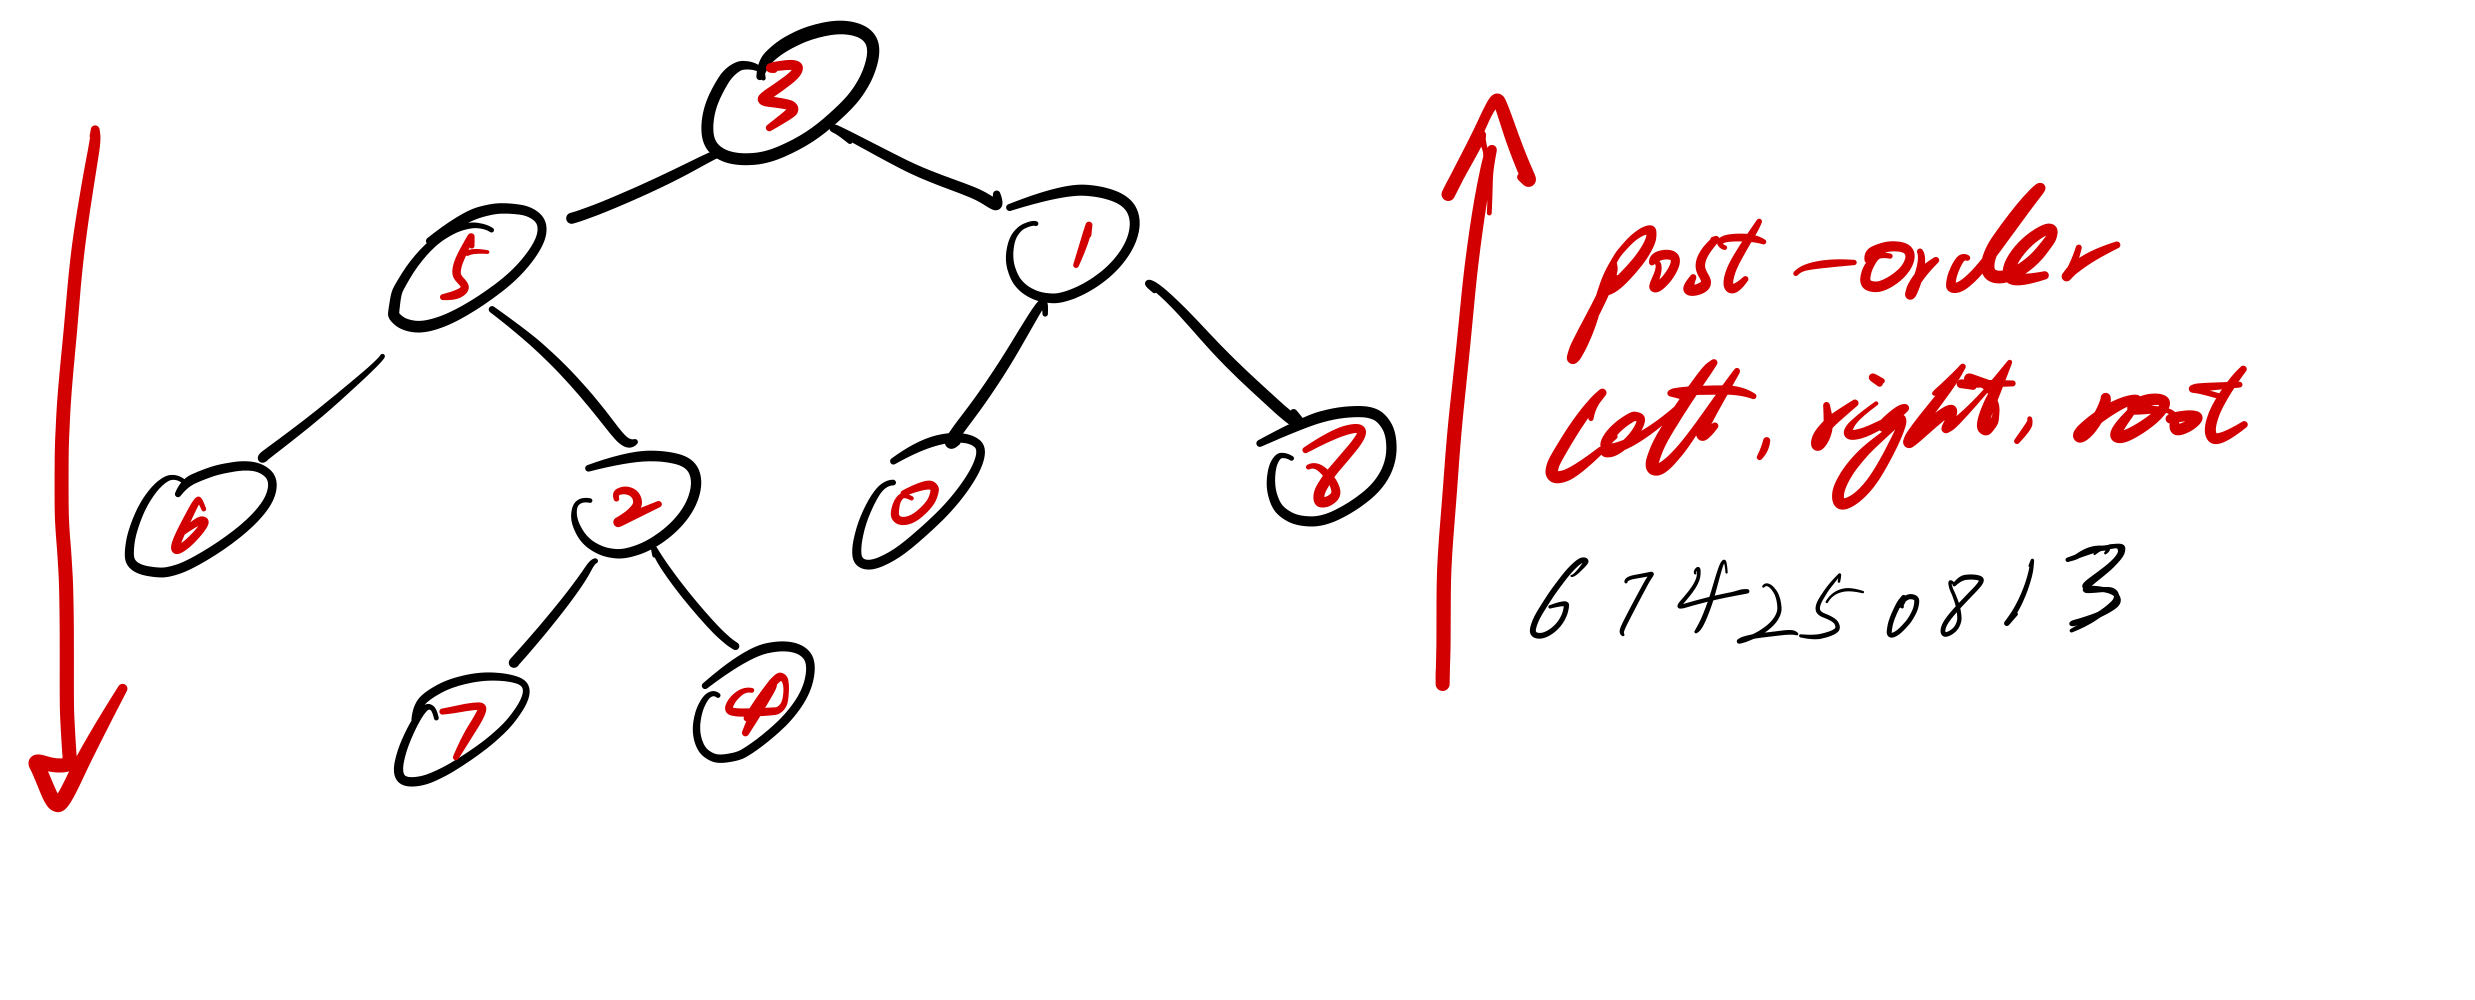 3
5 1
6 2 0 8
7 4
post-order
left, right, root
6 7 4 2 5 0 8 1 3